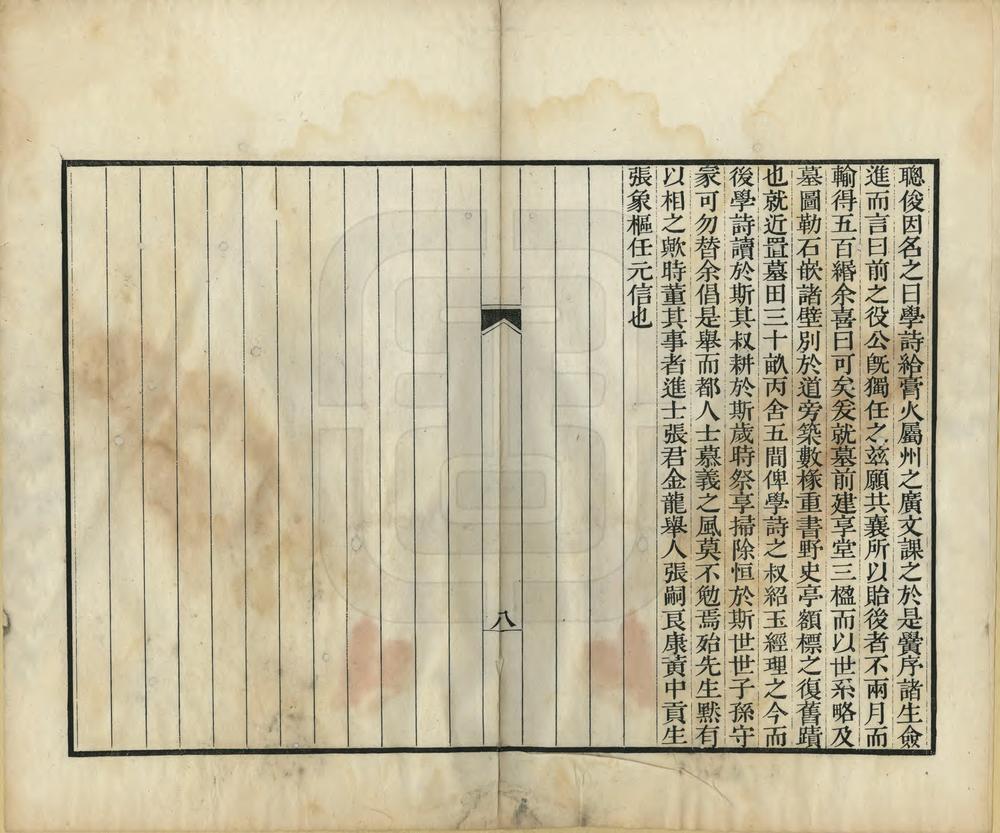 聰俊因名之曰學詩給膏火屬州之廣文課之於是黌序諸生僉
進而言曰前之役公旣獨任之茲願共襄所以貽後者不兩月而
輸得五百緡余喜曰可矣爰就墓前建享堂三楹而以世系略及
墓圖勒石嵌諸壁別於道旁築數椽重書野史亭額標之復舊蹟
也就近置墓田三十畝丙舍五間俾學詩之叔紹玉經理之今而
後學詩讀於斯其叔耕於斯歲時祭享掃除恒於斯世世子孫守
家可勿替余倡是舉而都人士慕義之風莫不勉焉殆先生默有
以相之歟時董其事者進士張君金龍舉人張嗣良康黃中貢生
張象樞任元信也
八